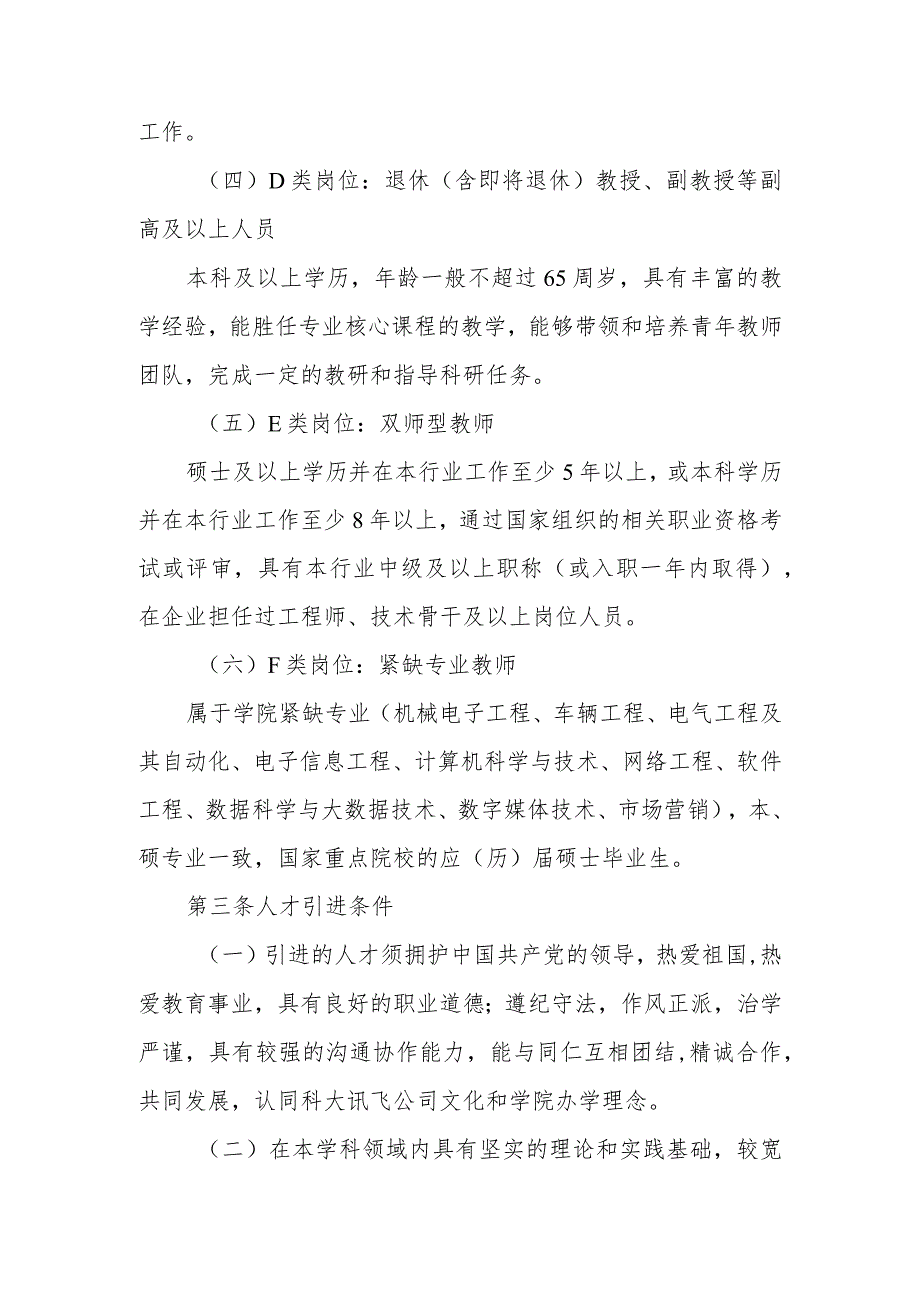 工作。
（四）D类岗位：退休（含即将退休）教授、副教授等副
高及以上人员
本科及以上学历，年龄一般不超过65周岁，具有丰富的教
学经验，能胜任专业核心课程的教学，能够带领和培养青年教师
团队，完成一定的教研和指导科研任务。
（五）E类岗位：双师型教师
硕士及以上学历并在本行业工作至少5年以上，或本科学历
并在本行业工作至少8年以上，通过国家组织的相关职业资格考
试或评审，具有本行业中级及以上职称（或入职一年内取得），
在企业担任过工程师、技术骨干及以上岗位人员。
（六）F类岗位：紧缺专业教师
属于学院紧缺专业（机械电子工程、车辆工程、电气工程及
其自动化、电子信息工程、计算机科学与技术、网络工程、软件
工程、数据科学与大数据技术、数字媒体技术、市场营销），本、
硕专业一致，国家重点院校的应（历）届硕士毕业生。
第三条人才引进条件
（一）引进的人才须拥护中国共产党的领导，热爱祖国,热
爱教育事业，具有良好的职业道德；遵纪守法，作风正派，治学
严谨，具有较强的沟通协作能力，能与同仁互相团结,精诚合作，
共同发展，认同科大讯飞公司文化和学院办学理念。
（二）在本学科领域内具有坚实的理论和实践基础，较宽